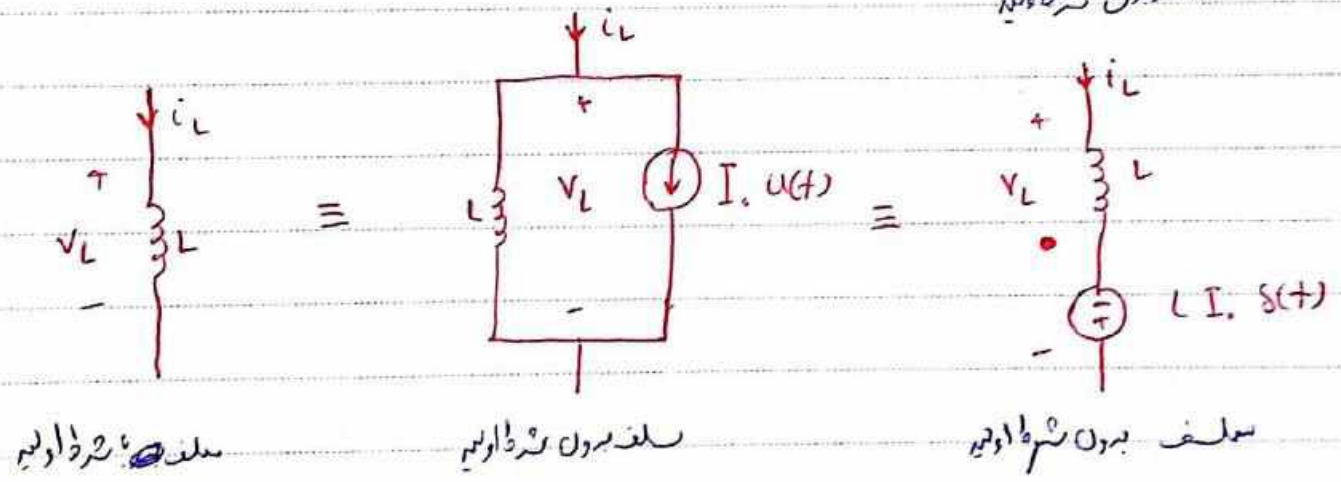 بدون شرط اولیه
i_L
i_L
i_L
+
V_L
L
−
≡
L
+
V_L
−
I₀ u(t)
≡
+
V_L
L
−
+
−
L I₀ δ(t)
سلف با شرط اولیه
سلف بدون شرط اولیه
سلف بدون شرط اولیه